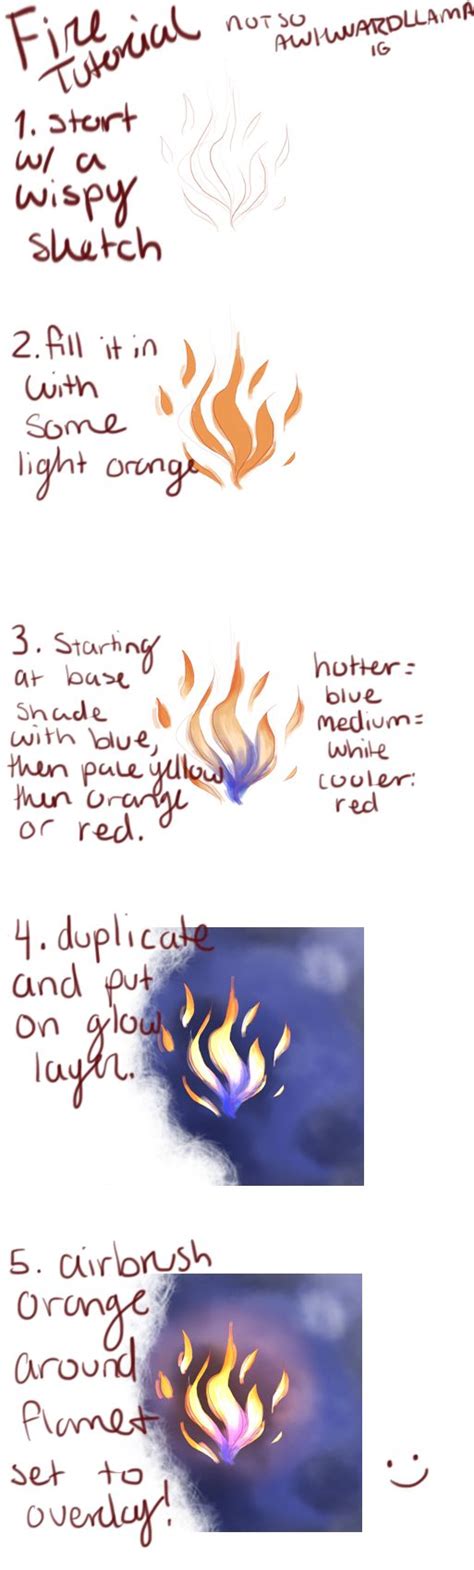 Fire
Tutorial
NOT SO
AWKWARDLLAMA
IG
1. Start
w/ a
wispy
sketch
2. fill it in
with
some
light orange
3. Starting
at base
shade
with blue,
then pale yellow
then orange
or red.
hotter=
blue
medium=
white
cooler:
red
4. duplicate
and put
on glow
layer.
5. airbrush
orange
around
flame &
set to
overlay!